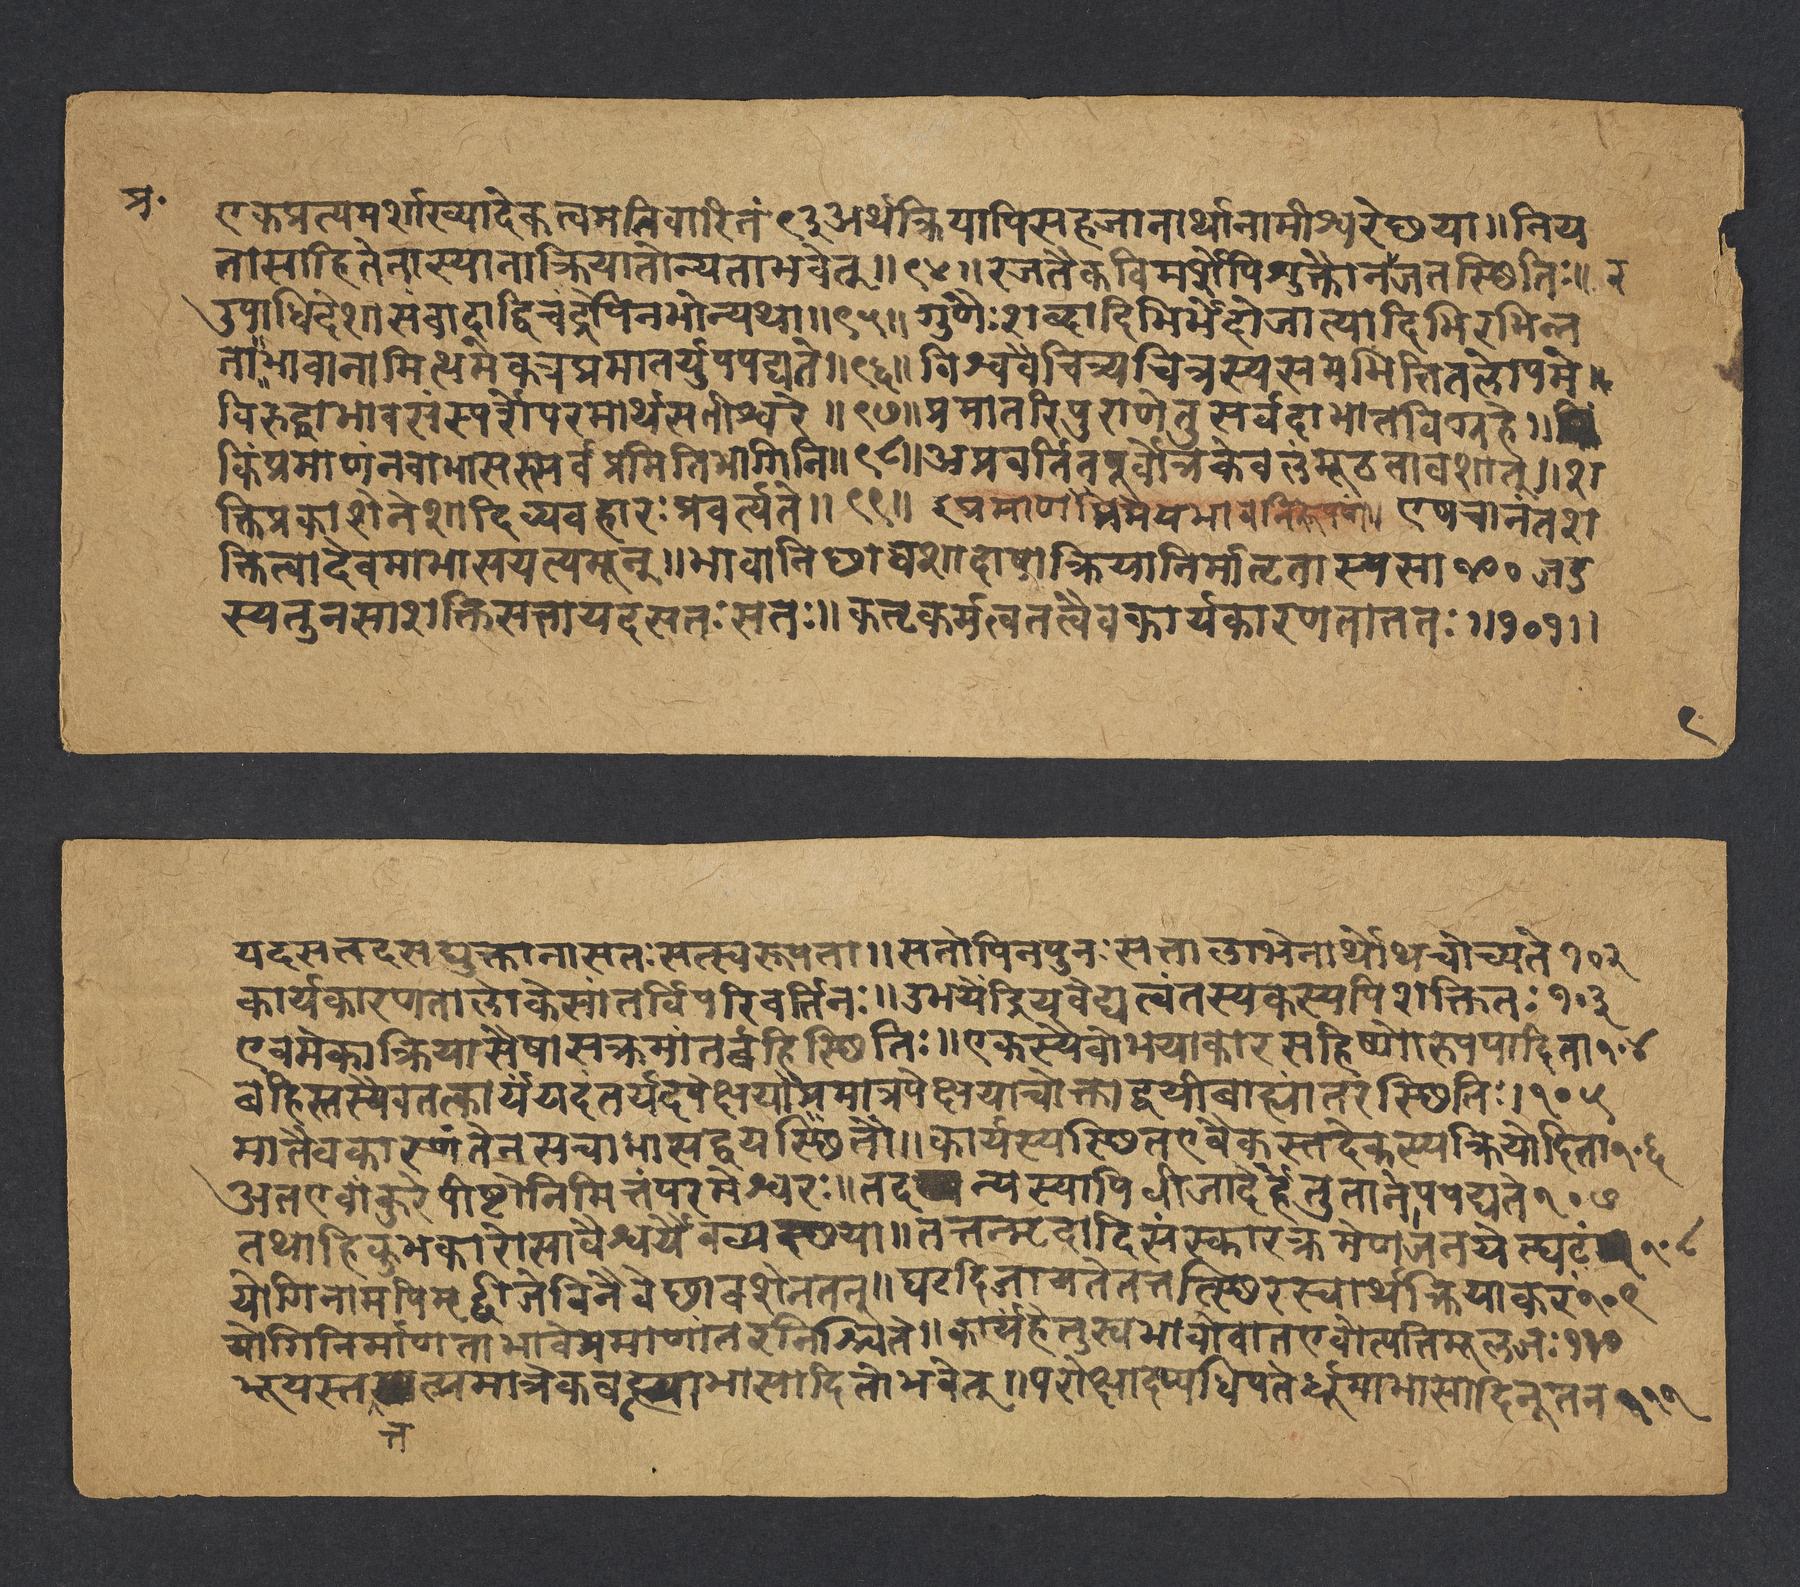 प्र॰
एकप्रत्यमर्शाख्यादेकत्वमनिवारितं ९३ अर्थक्रियापिसहजानार्थानामीश्वरेछया॥निय
तासाहितेनास्यानाक्रियातोन्यताभवेत्॥९४॥रजतैकविमर्शेपिशुक्तौनजतस्थितिः॥ र
उपाधिदेशासंवादाद्विचंद्रेपिनभोन्यथा॥९५॥गुणैःशब्दादिभिर्भेदोजात्यादिभिरभिन्न
ता॥भावानामित्थमेकत्रप्रमातर्युपपद्यते॥९६॥विश्ववैचित्र्यचित्रस्यसमभित्तितलोपमे॥
विरुद्धाभावसंस्पर्शेपरमार्थसतीश्वरे॥९७॥प्रमातरिपुराणेतुसर्वदाभातविग्रहे॥
किंप्रमाणंनवाभासस्सर्वप्रमितिभागिनि॥९८॥अप्रवर्तितपूर्वोत्रकेवलंमूढतावशात्॥श
क्तिप्रकाशेनेशादिव्यवहारःप्रवर्त्यते॥९९॥ ३प्रमाणप्रमेयभावनिरूपणं॥ एषचानंतश
क्तित्वादेवमाभासयत्यमून्॥भावानिछावशादेषाक्रियानिर्मातृतास्यसा१००जड
स्यतुनसाशक्तिसत्तायदसतःसतः॥कर्तृकर्मत्वतत्वैवकार्यकारणताततः॥१०१॥
९
यदसत्तदसद्युक्तानासतःसत्स्वरूपता॥सतोपिनपुनःसत्तालाभेनार्थोथचोच्यते१०२
कार्यकारणतालोकेसांतर्विपरिवर्तिनः॥उभयेंद्रियवेद्यत्वंतस्यकस्यपिशक्तितः१०३
एवमेकाक्रियासैषासक्रमांतर्बहिस्थितिः॥एकस्यैवोभयाकारसहिष्णोरुपपादिता१०४
बहिस्तस्यैवतत्कार्यंयदंतर्यदपेक्षया॥प्रमात्रपेक्षयाचोक्ताद्वयीबाह्यांतरस्थितिः।१०५
मातैवकारणंतेनसचाभासद्वयस्थितौ॥कार्यस्यस्थितएवैकस्तदेकस्यक्रियोदिता१०६
अतएवांकुरेपीष्टोनिमित्तंपरमेश्वरः॥तदन्यस्यापिबीजादेर्हेतुतानोपपद्यते१०७
तथाहिकुंभकारोसावैश्वर्यैवव्यवस्थया॥तत्तन्मृदादिसंस्कारक्रमेणजनयेत्घटं१०८
योगिनामपिमृद्बीजेविनैवेछावशेनतत्॥घटादिजायतेतत्तत्स्थिरस्वार्थक्रियाकरं१०९
योगिनिर्माणताभावेप्रमाणांतरनिश्चिते॥कार्यंहेतुस्वभावोवातएवोत्पत्तिमूलजः११०
भूयस्तत्तत्प्रमात्रेकवह्न्याभासादितोभवेत्॥परोक्षादप्यधिपतेर्धूमाभासादिनूतन१११
त्त